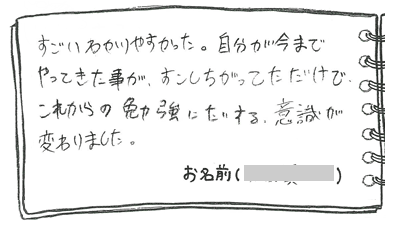 すごいわかりやすかった。自分が今まで
やってきた事が、すこしちがってただけで、
これからの勉強にたいする、意識が
変わりました。
お名前( )